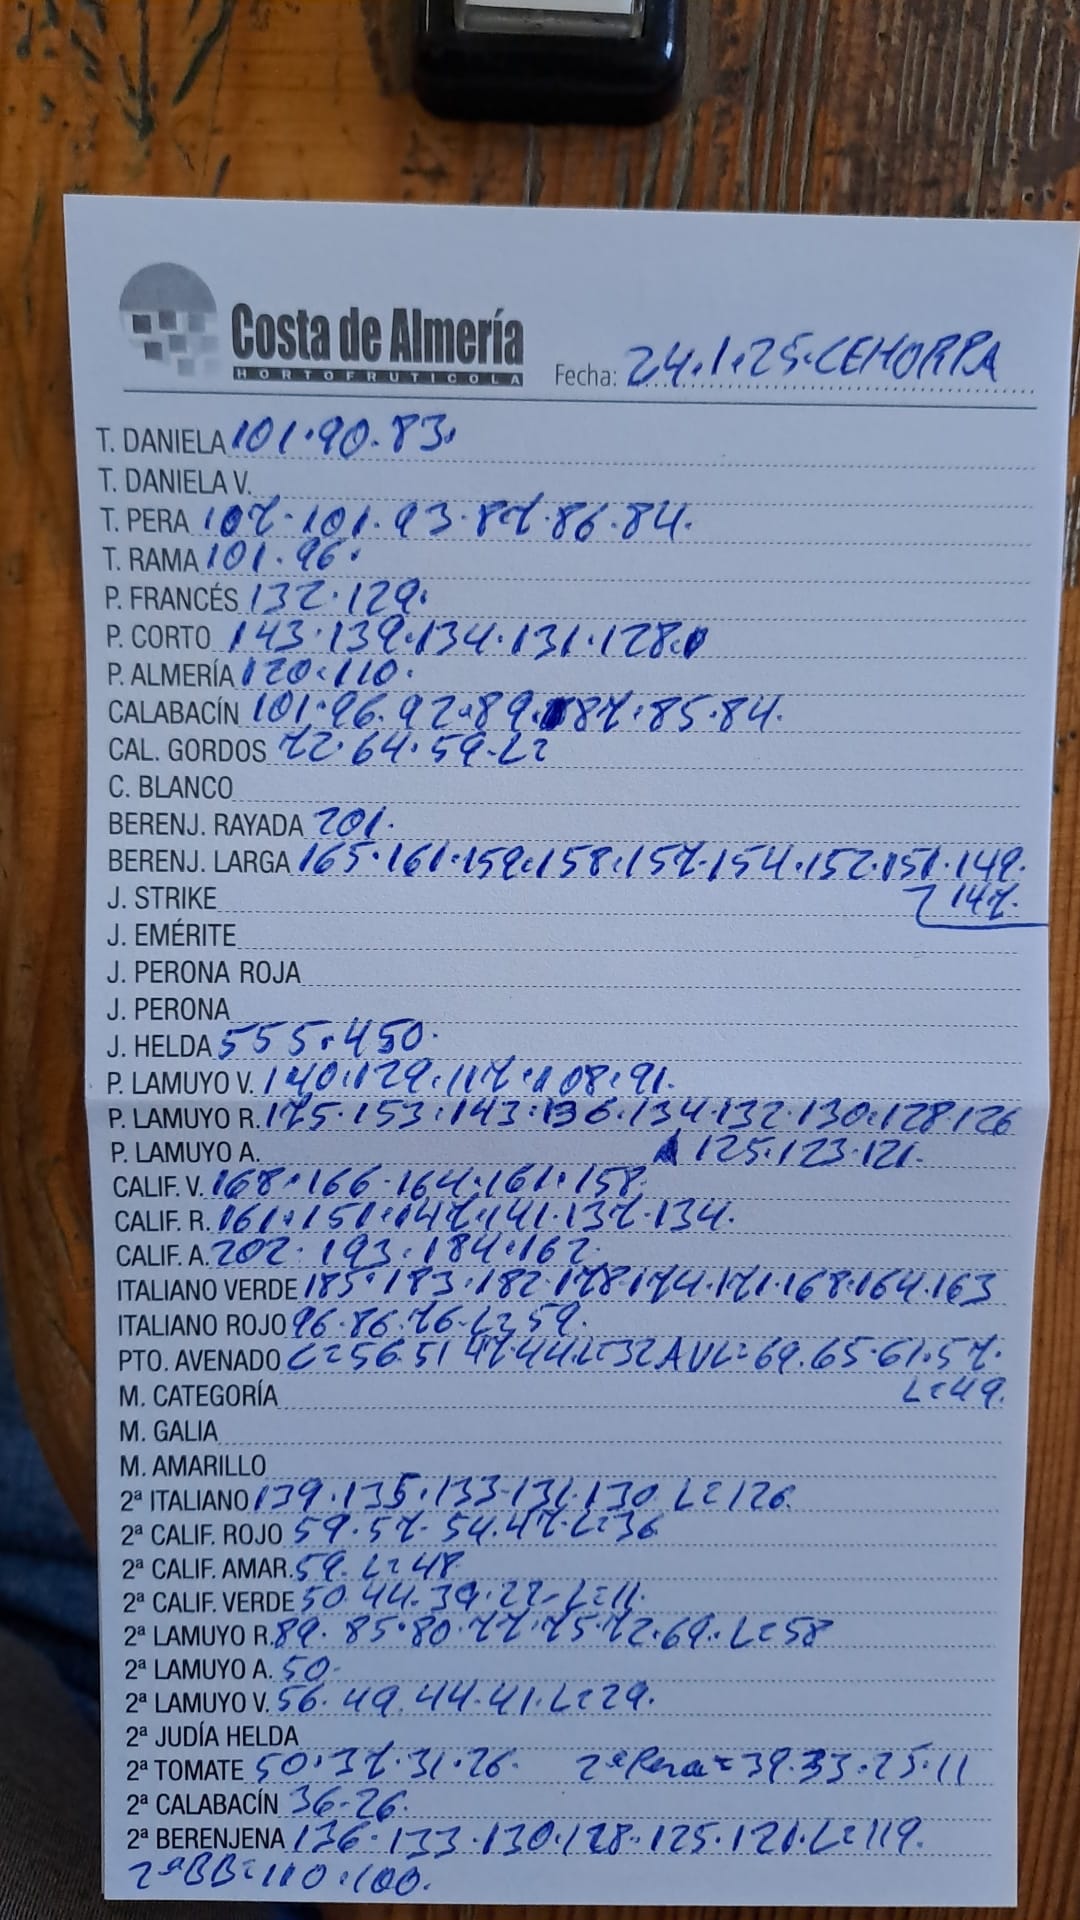 Costa de Almería
HORTOFRUTICOLA
Fecha: 24.1.25.CEHORPA
T. DANIELA 101.90.83.
T. DANIELA V.
T. PERA 107.101.93.87.86.84.
T. RAMA 101.96.
P. FRANCÉS 132.129.
P. CORTO 143.139.134.131.128.
P. ALMERÍA 120.110.
CALABACÍN 101.96.92.89.87.85.84.
CAL. GORDOS 72.64.59-L2
C. BLANCO
BERENJ. RAYADA 201.
BERENJ. LARGA 165.161.159.158.157.154.152.151.149.
J. STRIKE 147.
J. EMÉRITE
J. PERONA ROJA
J. PERONA
J. HELDA 555.450.
P. LAMUYO V. 140.129.117.108.91.
P. LAMUYO R. 175.153.143.136.134.132.130.128.126
P. LAMUYO A. 125.123.121.
CALIF. V. 168.166.164.161.158.
CALIF. R. 161.151.147.141.137.134.
CALIF. A. 202.193.184.162.
ITALIANO VERDE 185.183.182.178.174.171.168.164.163
ITALIANO ROJO 96.86.76-L=59.
PTO. AVENADO C=56.51.47.44.L=32 AVL=69.65.61.57.
M. CATEGORÍA L=49.
M. GALIA
M. AMARILLO
2ª ITALIANO 139.135.133.131.130. L=126.
2ª CALIF. ROJO 59.57.54.47.L=36
2ª CALIF. AMAR. 59. L=48
2ª CALIF. VERDE 50.44.39.27-L=11.
2ª LAMUYO R. 89.85.80.77.75.72.69.L=58
2ª LAMUYO A. 50.
2ª LAMUYO V. 56.49.44.41.L=29.
2ª JUDÍA HELDA
2ª TOMATE 50.37.31.26. 2ªPera=39.33.25.11
2ª CALABACÍN 36-26.
2ª BERENJENA 136.133.130.128.125.121.L=119.
2ªBB=110.100.